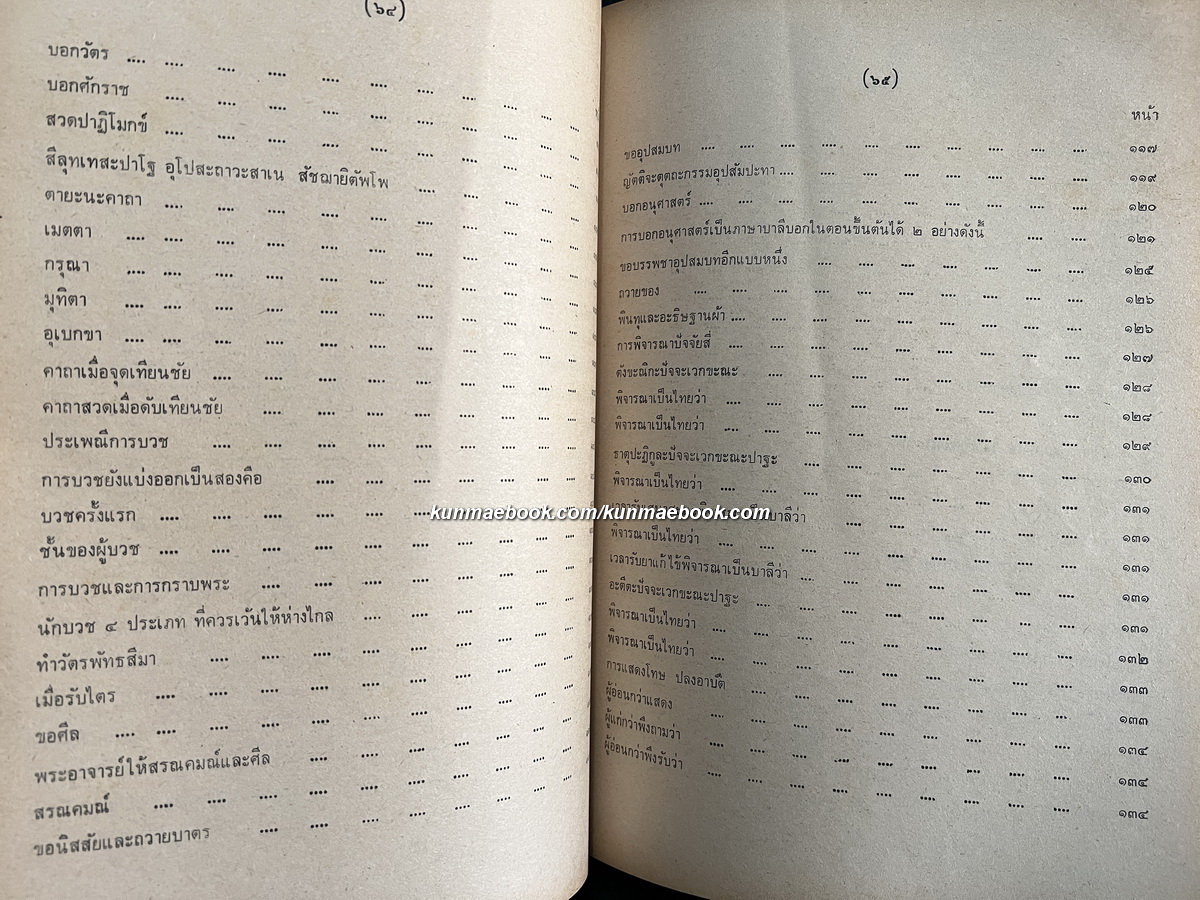 (๖๔)
บอกวัตร .... .... .... .... .... .... .... .... .... ....
บอกศักราช .... .... .... .... .... .... .... .... ....
สวดปาฏิโมกข์ .... .... .... .... .... .... .... .... ....
สีลุทเทสะปาโฐ อุโปสะถาวะสาเน สัชฌายิตัพโพ .... .... .... ....
ตายะนะคาถา .... .... .... .... .... .... .... .... ....
เมตตา .... .... .... .... .... .... .... .... .... ....
กรุณา .... .... .... .... .... .... .... .... .... ....
มุทิตา .... .... .... .... .... .... .... .... .... ....
อุเบกขา .... .... .... .... .... .... .... .... .... ....
คาถาเมื่อจุดเทียนชัย .... .... .... .... .... .... .... ....
คาถาสวดเมื่อดับเทียนชัย .... .... .... .... .... .... ....
ประเพณีการบวช .... .... .... .... .... .... .... ....
การบวชยังแบ่งออกเป็นสองคือ .... .... .... .... .... ....
บวชครั้งแรก .... .... .... .... .... .... .... .... ....
ชั้นของผู้บวช .... .... .... .... .... .... .... .... ....
การบวชและการกราบพระ .... .... .... .... .... .... ....
นักบวช ๔ ประเภท ที่ควรเว้นให้ห่างไกล .... .... .... .... ....
ทำวัตรพัทธสีมา .... .... .... .... .... .... .... ....
เมื่อรับไตร .... .... .... .... .... .... .... .... ....
ขอศีล .... .... .... .... .... .... .... .... .... ....
พระอาจารย์ให้สรณคมณ์และศีล .... .... .... .... .... ....
สรณคมณ์ .... .... .... .... .... .... .... .... ....
ขอนิสสัยและถวายบาตร .... .... .... .... .... .... ....
(๖๕)
หน้า
ขออุปสมบท .... .... .... .... .... .... .... .... ๑๑๗
ญัตติจะตุตถะกรรมอุปสัมปะทา .... .... .... .... .... .... ๑๑๙
บอกอนุศาสตร์ .... .... .... .... .... .... .... .... ๑๒๐
การบอกอนุศาสตร์เป็นภาษาบาลีบอกในตอนขึ้นต้นได้ ๒ อย่างดังนี้ .... .... ๑๒๑
ขอบรรพชาอุปสมบทอีกแบบหนึ่ง .... .... .... .... .... .... ๑๒๕
ถวายของ .... .... .... .... .... .... .... .... ๑๒๖
พินทุและอะธิษฐานผ้า .... .... .... .... .... .... .... ๑๒๖
การพิจารณาปัจจัยสี่ .... .... .... .... .... .... .... ๑๒๗
ตังขะณิกะปัจจะเวกขะณะ .... .... .... .... .... .... .... ๑๒๘
พิจารณาเป็นไทยว่า .... .... .... .... .... .... .... .... ๑๒๘
พิจารณาเป็นไทยว่า .... .... .... .... .... .... .... .... ๑๒๙
ธาตุปะฏิกูละปัจจะเวกขะณะปาฐะ .... .... .... .... .... .... ๑๓๐
พิจารณาเป็นไทยว่า .... .... .... .... .... .... .... .... ๑๓๑
เป็นบาลีว่า .... .... .... .... .... .... ๑๓๑
kunmaebook.com/kunmaebook.com
พิจารณาเป็นไทยว่า .... .... .... .... .... .... .... .... ๑๓๑
เวลารับยาแก้ไข้พิจารณาเป็นบาลีว่า .... .... .... .... .... .... ๑๓๑
อะตีตะปัจจะเวกขะณะปาฐะ .... .... .... .... .... .... .... ๑๓๑
พิจารณาเป็นไทยว่า .... .... .... .... .... .... .... .... ๑๓๒
พิจารณาเป็นไทยว่า .... .... .... .... .... .... .... .... ๑๓๓
การแสดงโทษ ปลงอาบัติ .... .... .... .... .... .... .... ๑๓๓
ผู้อ่อนกว่าแสดง .... .... .... .... .... .... .... .... ๑๓๔
ผู้แก่กว่าพึงถามว่า .... .... .... .... .... .... .... .... ๑๓๔
ผู้อ่อนกว่าพึงรับว่า .... .... .... .... .... .... .... .... ๑๓๔